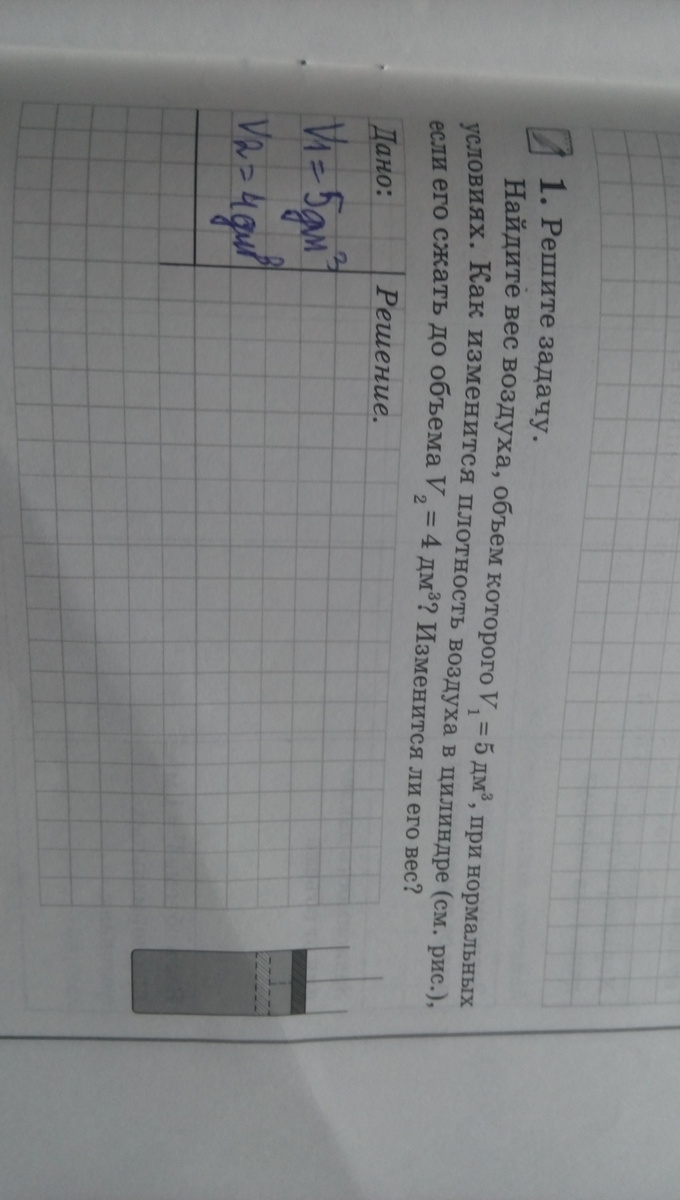 1. Решите задачу.
Найдите вес воздуха, объем которого V₁ = 5 дм³, при нормальных
условиях. Как изменится плотность воздуха в цилиндре (см. рис.),
если его сжать до объема V₂ = 4 дм³? Изменится ли его вес?
Дано:
Решение.
V1 = 5 дм³
V2 = 4 дм³